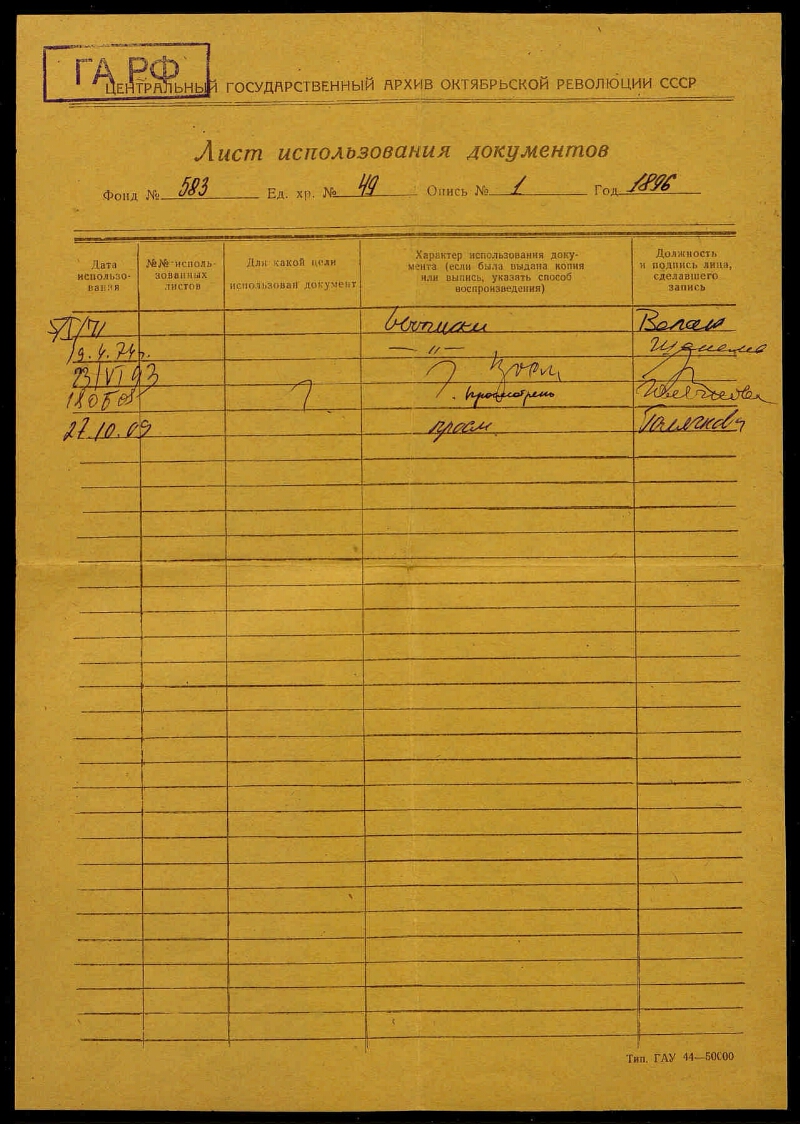 ГА РФ
ЦЕНТРАЛЬНЫЙ ГОСУДАРСТВЕННЫЙ АРХИВ ОКТЯБРЬСКОЙ РЕВОЛЮЦИИ СССР
Лист использования документов
Фонд № 583 Ед. хр. № 49 Опись № 1 Год 1896
Дата
использо-
вания
№№ исполь-
зованных
листов
Для какой цели
использован документ
Характер использования доку-
мента (если была выдана копия
или выпись, указать способ
воспроизведения)
Должность
и подпись лица,
сделавшего
запись
выписки
9. 4. 74г. — " —
23/VI 93
просмотрены
27.10.09 просм
Тип. ГАУ 44—50000